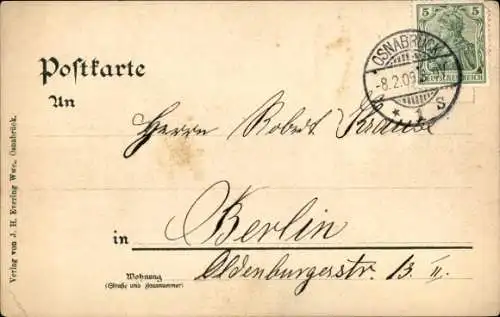 5 5
DEUTSCHES REICH
OSNABRÜCK
-8.2.05
* 1 S
Postkarte
An
Herrn Robert Krause
in Berlin
Oldenburgerstr. 13. II.
Wohnung
(Straße und Hausnummer)
Verlag von J. H. Evering Wwe., Osnabrück.